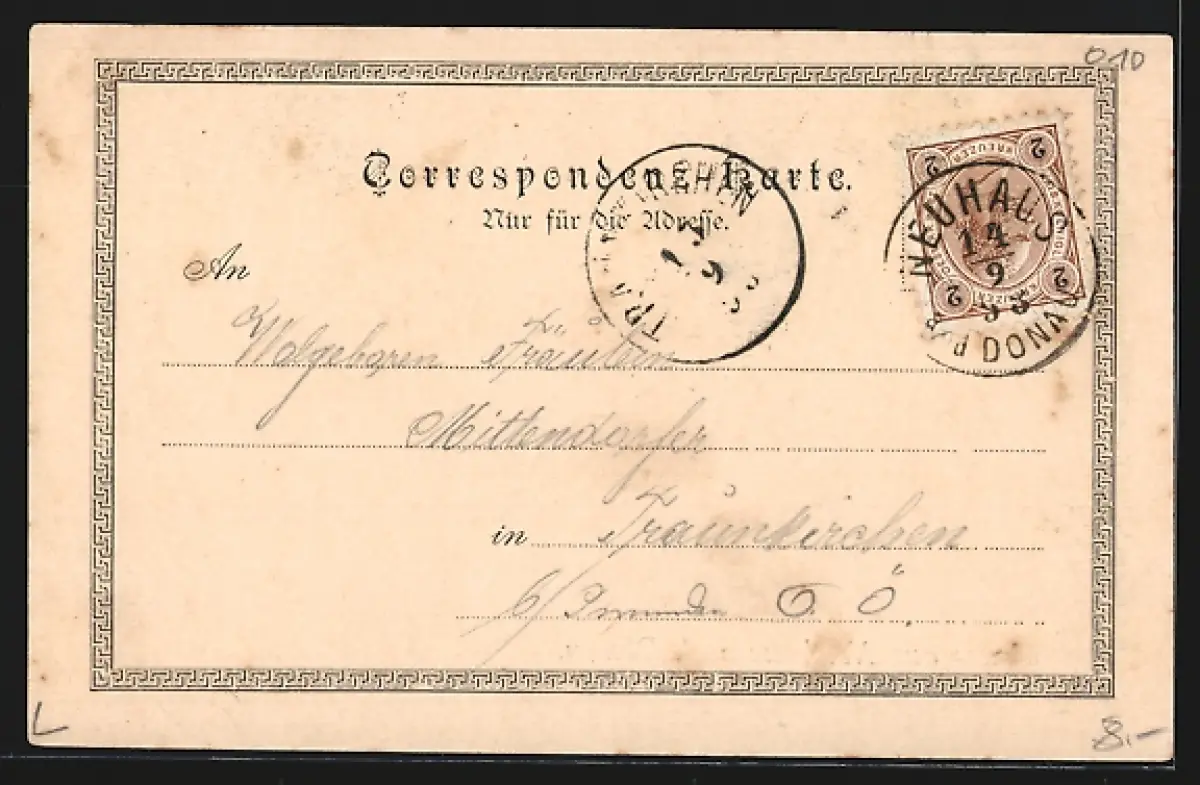 010
Correspondenz-Karte.
Nur für die Adresse.
2 KREUZER 2
2 2
NEUHAUS
14
9
93
A/D DONAU
TRAUNKIRCHEN
9
An
Wolgeboren Fräulein
Mittendorfer
in Traunkirchen
b/Gmunden O. Ö
L
8.-